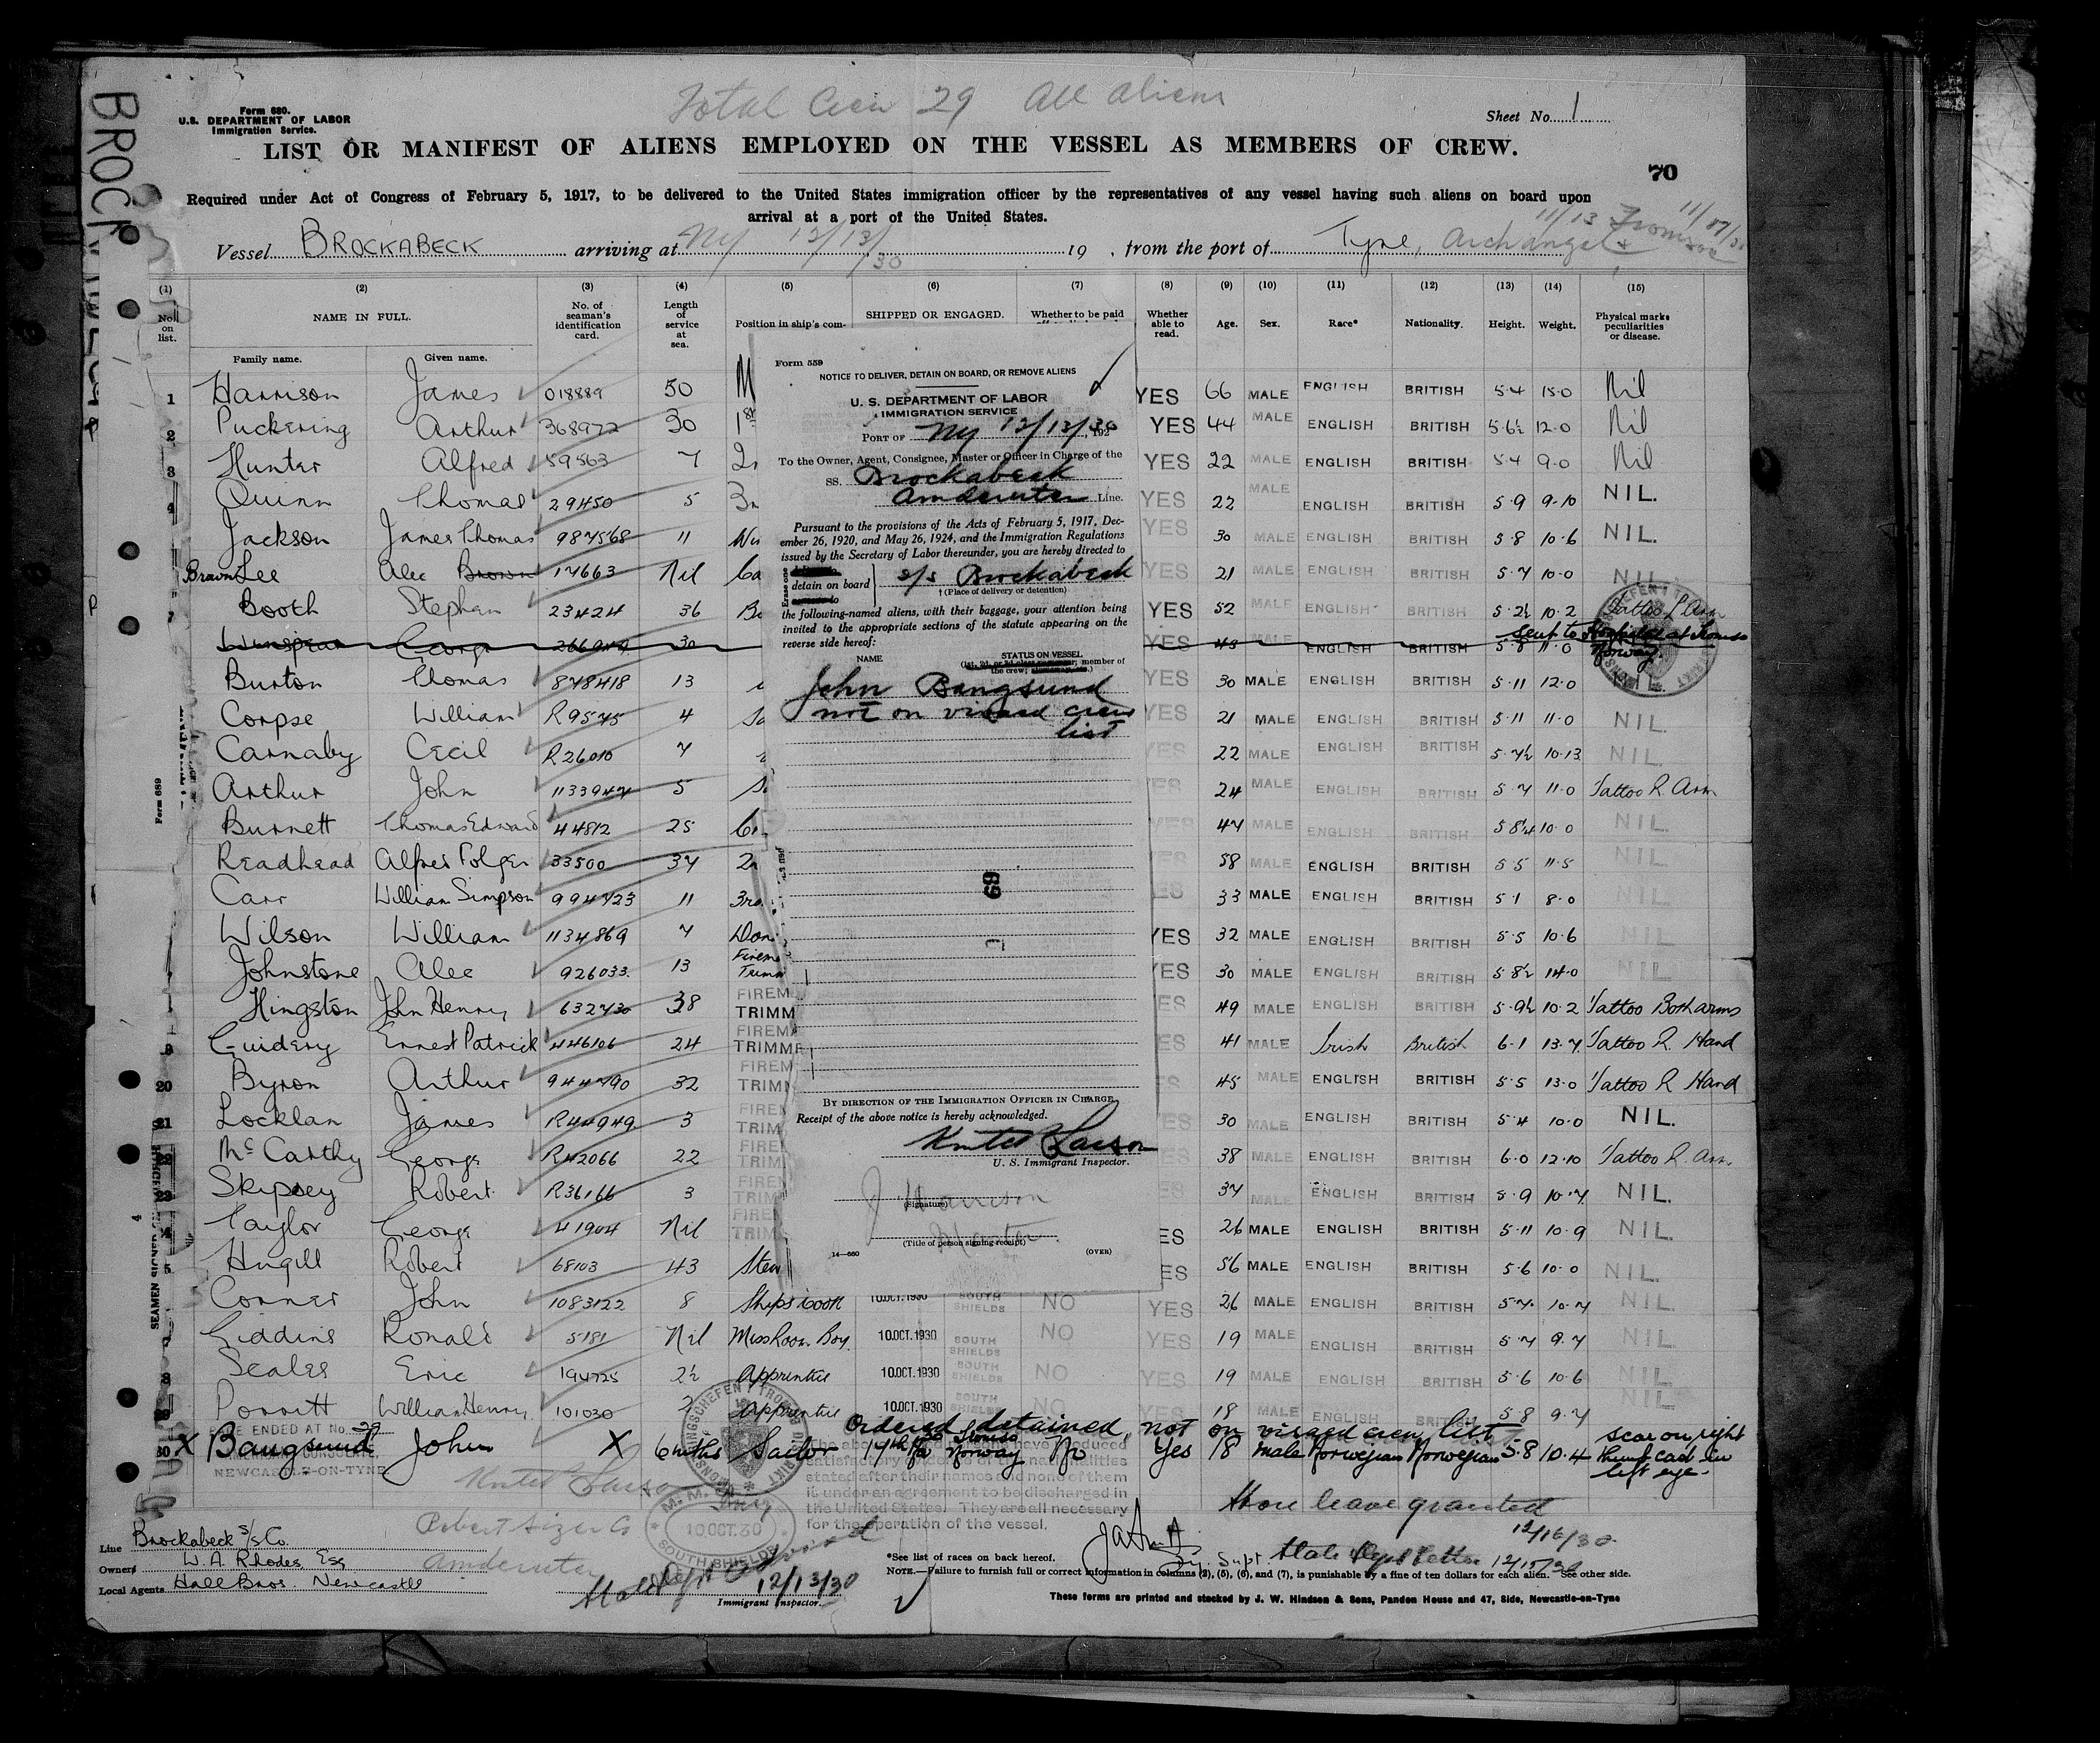 Total Crew 29 All aliens
Form 680.
U.S. DEPARTMENT OF LABOR
Immigration Service.
Sheet No. 1
LIST OR MANIFEST OF ALIENS EMPLOYED ON THE VESSEL AS MEMBERS OF CREW.
70
Required under Act of Congress of February 5, 1917, to be delivered to the United States immigration officer by the representatives of any vessel having such aliens on board upon
arrival at a port of the United States.
Vessel BROCKABECK arriving at NY 12/13/30 19 , from the port of Tyne, Archangel 11/13 11/27/30
(1) (2) (3) (4) (5) (6) (7) (8) (9) (10) (11) (12) (13) (14) (15)
No. on list. NAME IN FULL. Family name. Given name. No. of seaman's identification card. Length of service at sea. Position in ship's com- SHIPPED OR ENGAGED. Whether to be paid Whether able to read. Age. Sex. Race* Nationality. Height. Weight. Physical marks peculiarities or disease.
1 Harrison James 018889 50 M YES 66 MALE ENGLISH BRITISH 5-4 15-0 Nil
2 Puckering Arthur 368972 30 1st YES 44 MALE ENGLISH BRITISH 5-6½ 12-0 Nil
3 Hunter Alfred 59563 7 2n YES 22 MALE ENGLISH BRITISH 5-4 9-0 Nil
4 Quinn Thomas 29450 5 3n YES 22 MALE ENGLISH BRITISH 5-9 9-10 NIL.
Jackson James Thomas 987568 11 Wi YES 30 MALE ENGLISH BRITISH 5-8 10-6 NIL.
Brown Lee Alec Brown 17663 Nil Ca YES 21 MALE ENGLISH BRITISH 5-7 10-0 NIL
7 Booth Stephen 23424 36 Bo YES 52 MALE ENGLISH BRITISH 5-2½ 10-2 Tattoo L Arm
George 266949 30 YES 43 MALE ENGLISH BRITISH 5-8 11-0 sent to Hospital at Tromso Norway.
Burton Thomas 878418 13 YES 30 MALE ENGLISH BRITISH 5-11 12-0 NIL
Corpse William R9575 4 YES 21 MALE ENGLISH BRITISH 5-11 11-0 NIL
Carnaby Cecil R26010 7 YES 22 MALE ENGLISH BRITISH 5-7½ 10-13 NIL
Arthur John 1133947 5 YES 24 MALE ENGLISH BRITISH 5-7 11-0 Tattoo R. Arm
Burnett Thomas Edward 44812 25 YES 47 MALE ENGLISH BRITISH 5 8¼ 10-0 NIL
Readhead Alfred Folger 33500 37 2n YES 58 MALE ENGLISH BRITISH 5-5 11-5 NIL
Carr William Simpson 994723 11 3rd YES 33 MALE ENGLISH BRITISH 5-1 8-0 NIL
Wilson William 1134869 7 Don YES 32 MALE ENGLISH BRITISH 5-5 10-6 NIL
Johnstone Alec 926033 13 Firem Trimm YES 30 MALE ENGLISH BRITISH 5-8½ 14-0 NIL
Hingston John Henry 632730 38 FIREM TRIMM YES 49 MALE ENGLISH BRITISH 5-9½ 10-2 Tattoo Both arms
9 Guidery Ernest Patrick 446106 24 FIREM TRIMME YES 41 MALE Irish British 6-1 13-7 Tattoo R. Hand
20 Byron Arthur 944790 32 FIREM TRIM YES 45 MALE ENGLISH BRITISH 5-5 13-0 Tattoo R Hand
21 Locklan James R44949 3 FIREM TRIM YES 30 MALE ENGLISH BRITISH 5-4 10-0 NIL.
22 McCarthy George R42066 22 FIREM TRIM YES 38 MALE ENGLISH BRITISH 6-0 12-10 Tattoo R. Arm.
23 Skipsey Robert R36166 3 FIREM TRIM YES 37 MALE ENGLISH BRITISH 5-9 10-7 NIL.
Taylor George 41904 Nil FIREM TRIM YES 26 MALE ENGLISH BRITISH 5-11 10-9 NIL
5 Hugill Robert 68103 43 Stew YES 56 MALE ENGLISH BRITISH 5-6 10-0 NIL.
Conner John 1083122 8 Ships Cook 10.OCT.1930 SOUTH SHIELDS NO YES 26 MALE ENGLISH BRITISH 5-7 10-7 NIL
Giddins Ronald 5181 Nil Mess Room Boy. 10.OCT.1930 SOUTH SHIELDS NO YES 19 MALE ENGLISH BRITISH 5-7 9-7 NIL
8 Scales Eric 194725 2½ Apprentice 10.OCT.1930 SOUTH SHIELDS NO YES 19 MALE ENGLISH BRITISH 5-6 10-6 NIL
29 Porritt William Henry 101030 2 Apprentice 10.OCT.1930 SOUTH SHIELDS NO YES 18 MALE ENGLISH BRITISH 5-8 9-7 NIL
ENDED AT No. 29
Ordered detained, not on visaed crew list
30 X Bangsund John X 6 mths Sailor 17th Tromso Norway No Yes 18 male Norwegian Norwegian 5-8 10-4 scar on right thumb cast in left eye.
NEWCASTLE-ON-TYNE
Form 559
NOTICE TO DELIVER, DETAIN ON BOARD, OR REMOVE ALIENS
U. S. DEPARTMENT OF LABOR
IMMIGRATION SERVICE
PORT OF NY 12/13/30, 192
To the Owner, Agent, Consignee, Master or Officer in Charge of the
SS. Brockabeck
Line.
Pursuant to the provisions of the Acts of February 5, 1917, Dec-
ember 26, 1920, and May 26, 1924, and the Immigration Regulations
issued by the Secretary of Labor thereunder, you are hereby directed to
Erase one
detain on board s/s Brockabeck
† (Place of delivery or detention)
the following-named aliens, with their baggage, your attention being
invited to the appropriate sections of the statute appearing on the
reverse side hereof:
NAME STATUS ON VESSEL
member of the crew;
John Bangsund
not on visaed crew
list
69
BY DIRECTION OF THE IMMIGRATION OFFICER IN CHARGE.
Receipt of the above notice is hereby acknowledged.
U. S. Immigrant Inspector.
J Harrison
(Signature)
Master
(Title of person signing receipt)
14—660 (OVER)
The above have produced
satisfactory nationalities
stated after their names and none of them
is under an agreement to be discharged in
the United States. They are all necessary
for the operation of the vessel.
M. M. O.
10 OCT. 30
SOUTH SHIELDS
Shore leave granted
12/16/30
12/15/30
Line Brockabeck S/S Co.
Owners W. A. Rhodes, Esq
Local Agents Hall Bros. Newcastle
Robert Sizer Co
12/13/30
Immigrant Inspector.
*See list of races on back hereof.
NOTE.—Failure to furnish full or correct information in columns (2), (5), (6), and (7), is punishable by a fine of ten dollars for each alien. See other side.
These forms are printed and stocked by J. W. Hindson & Sons, Pandon House and 47, Side, Newcastle-on-Tyne
Form 689